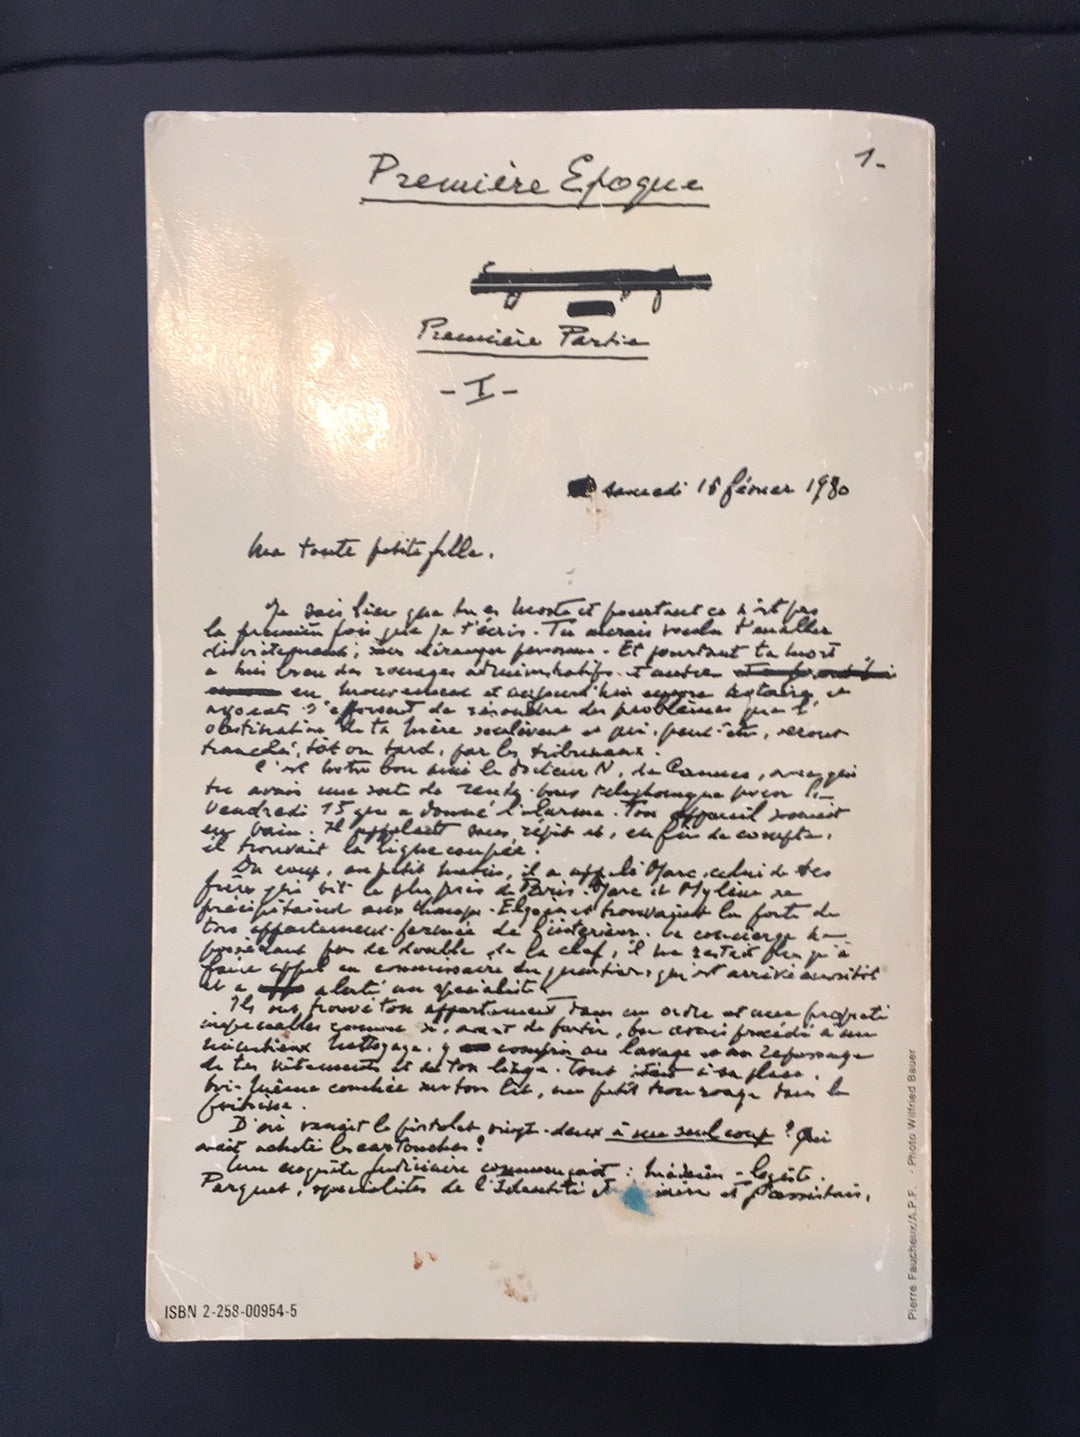 1-
Première Epoque
Première Partie
- I -
samedi 16 février 1980
Ma toute petite fille.
Je sais bien que tu es morte et pourtant ce n'est pas
la première fois que je t'écris. Tu aurais voulu t'en aller
discrètement, sans déranger personne. Et pourtant ta mort
a mis bien des rouages administratifs et autres
en mouvement et aujourd'hui encore notaires et
avocats s'efforcent de résoudre des problèmes que l'
obstination de ta mère soulèvent et qui, peut-être, seront
tranchés, tôt ou tard, par les tribunaux.
C'est notre bon ami le docteur N, de Cannes, avec qui
tu avais une sorte de rendez-vous téléphonique pour le
vendredi 15 qui a donné l'alarme. Ton appareil sonnait
en vain. Il appelait sans répit et, en fin de compte,
il trouvait la ligne coupée.
Du coup, au petit matin, il a appelé Marc, celui de tes
frères qui vit le plus près de Paris. Marc et Mylène se
précipitaient aux Champs-Elysées et trouvaient la porte de
ton appartement fermée de l'intérieur. Le concierge ne
possédant pas de double de la clef, il ne restait plus qu'à
faire appel au commissaire du quartier, qui est arrivé aussitôt
et a alerté un spécialiste.
Ils ont trouvé ton appartement dans un ordre et une propreté
impeccables comme si, avant de partir, tu avais procédé à un
minutieux nettoyage, y compris au lavage et au repassage
de tes vêtements et de ton linge. Tout était à sa place.
toi-même couchée sur ton lit, un petit trou rouge dans la
poitrine.
D'où venait le pistolet vingt-deux à un seul coup ? Qui
avait acheté les cartouches ?
Une enquête judiciaire commençait : médecin-légiste,
Parquet, spécialistes de l'Identité et j'assistais,
ISBN 2-258-00954-5
Pierre Faucheux/A.P.F. - Photo Wilfried Bauer